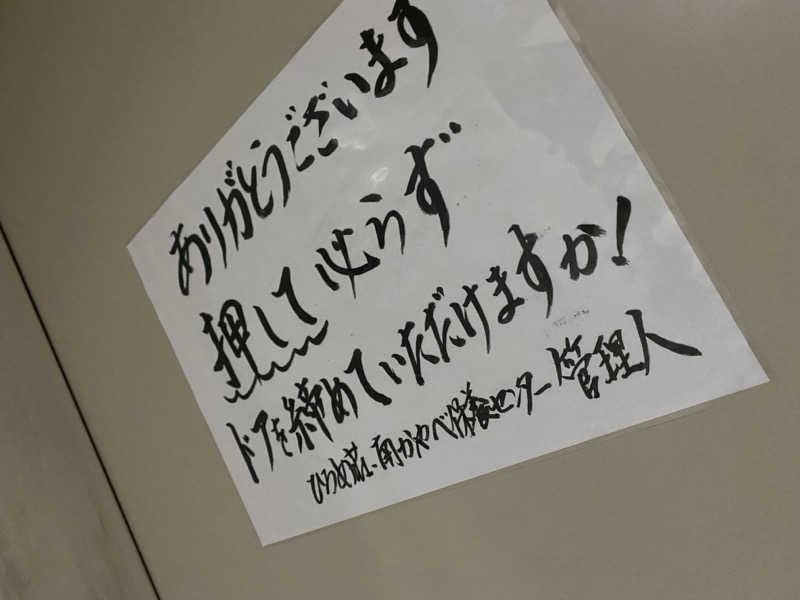 ありがとうございます
押して必らず
ドアを締めていただけますか!
ひろめ荘・南かやべ保養センター 管理人